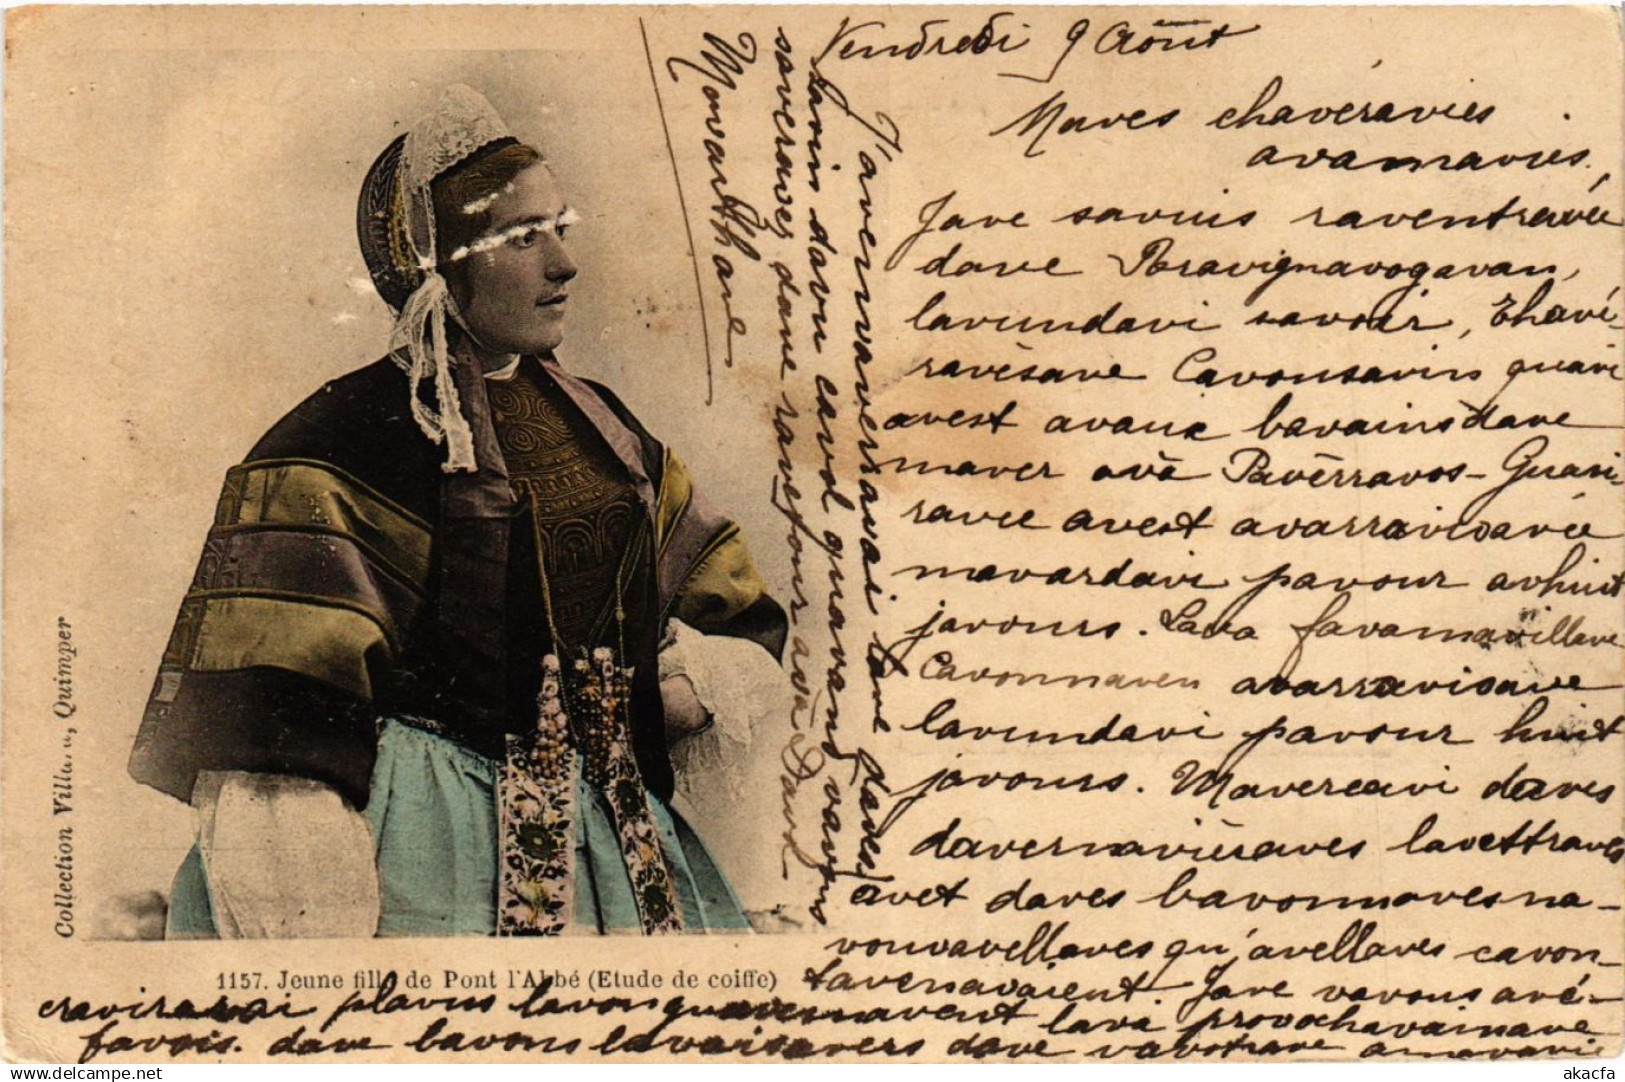 Vendredi 9 Août
Maves chaveravies
avamavies.
Jave savuis raventravée
dave Perravignavogavan,
lavundavi savoir, Thavé-
ravèsave Cavousavin quavi
avest avaux bavainsdave
maver avà Pavèrravos-Guavi-
ravec avest avarravisavée
mavardavi pavour avhuit
javours. Lava favamavillave
Cavonnaven avarravisave
lavundavi pavour huit
javours. Mavercavi daves
davernavièraves lavettraves
avet daves bavonnavesna-
vouvavellaves qu'avellaves cavon-
tavenavaient. Jave vavous avé-
craviravai plavus lavonguavemavent lava provochavainave
favois. dave bavons lavaisavers dave vavotrave amavavie
J'avenvaverravai lave daves
savin davu cavol quavand vavous
saveraves dave ravetour avà Pavol
Mavarthave
Collection Villard, Quimper
1157. Jeune fille de Pont l'Abbé (Etude de coiffe)
akacfa